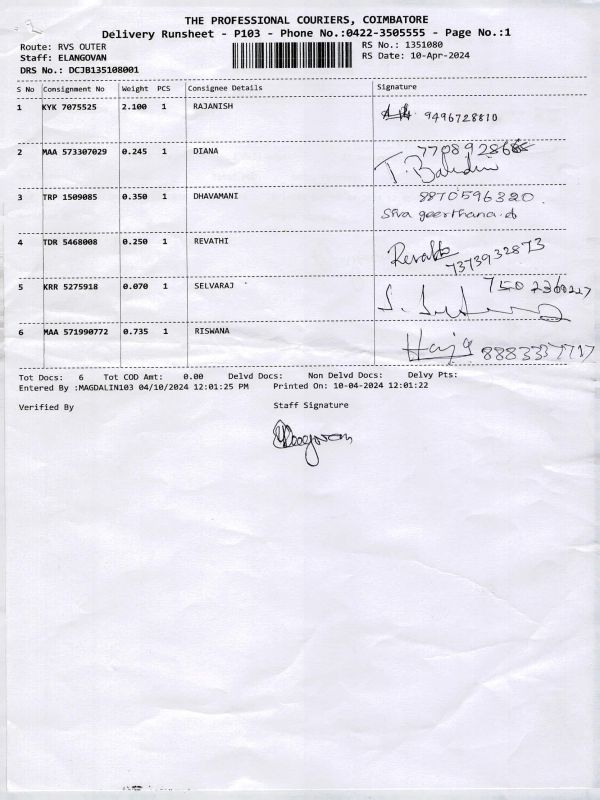 THE PROFESSIONAL COURIERS, COIMBATORE
Delivery Runsheet - P103 - Phone No.:0422-3505555 - Page No.:1
Route: RVS OUTER RS No.: 1351080
Staff: ELANGOVAN RS Date: 10-Apr-2024
DRS No.: DCJB135108001
S No Consignment No Weight PCS Consignee Details Signature
1 KYK 7075525 2.100 1 RAJANISH 9496728810
2 MAA 573307029 0.245 1 DIANA
3 TRP 1509085 0.350 1 DHAVAMANI 8870596320
Siva geerthana.d
4 TDR 5468008 0.250 1 REVATHI Revathi
7373932873
5 KRR 5275918 0.070 1 SELVARAJ
6 MAA 571990772 0.735 1 RISWANA
Tot Docs: 6 Tot COD Amt: 0.00 Delvd Docs: Non Delvd Docs: Delvy Pts:
Entered By :MAGDALIN103 04/10/2024 12:01:25 PM Printed On: 10-04-2024 12:01:22
Verified By Staff Signature
Elangovan